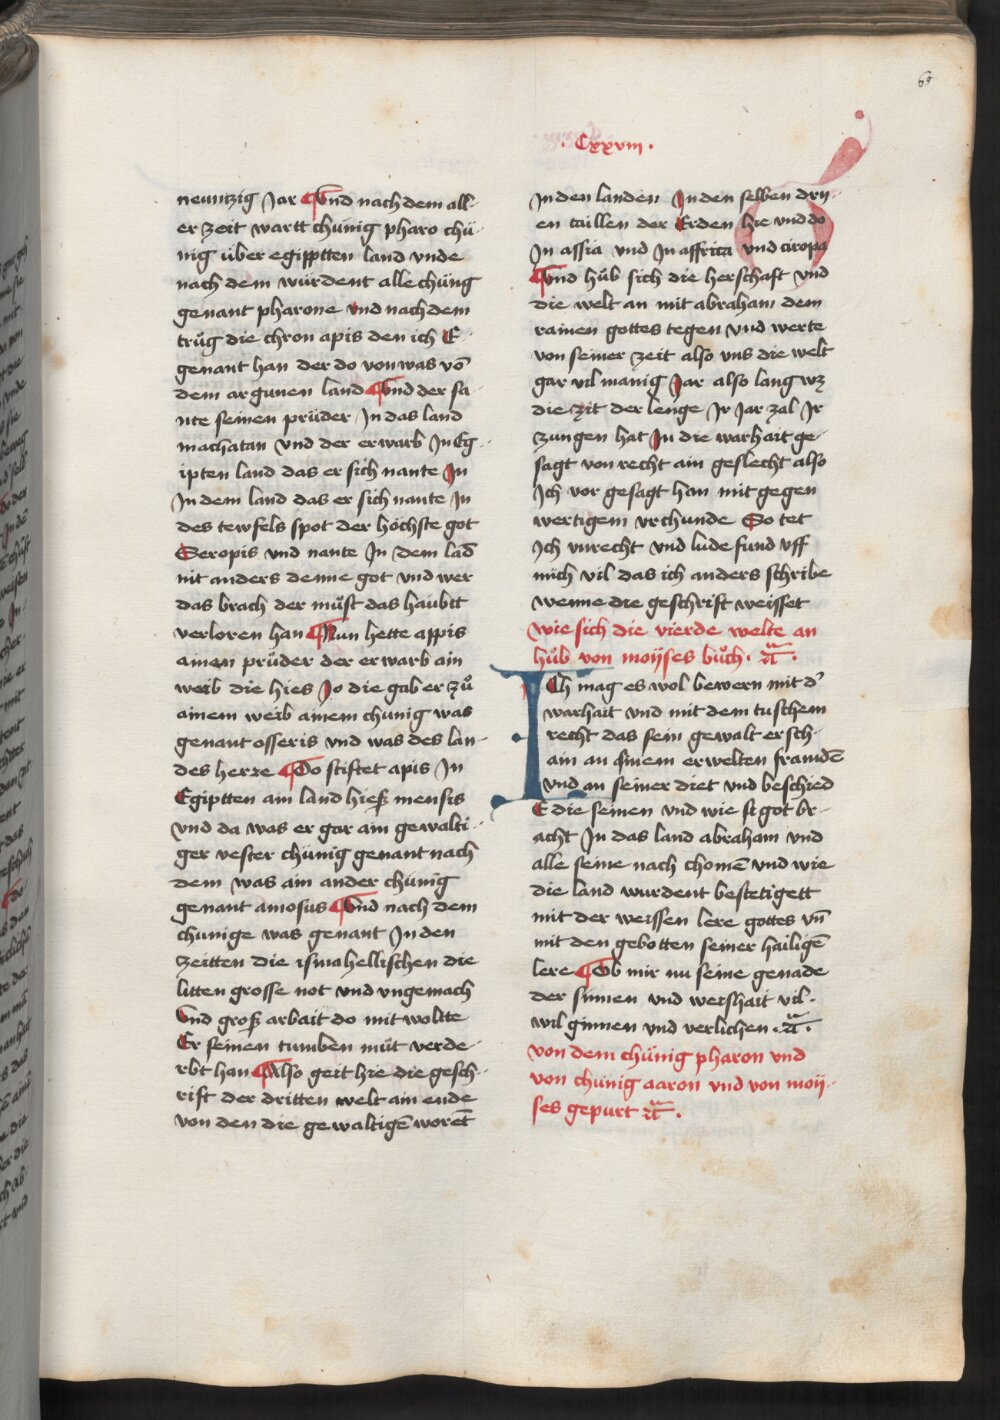 63
· Cxxviii ·
neuntzig Jar Vnd nach dem all¬
er zeit wartt chúnig pharo chú¬
nig úber egipptten land vnde
nach dem wúrdent alle chúng
genant pharone vnd nach dem
trůg die chron apis den ich E¬
genant han der do von was vō
dem argunen land Vnd der sa¬
nte seinen průder Jn das land
machatan vnd der erwarb Jn Eg¬
ipten land das er sich nante Jn
Jn dem land das er sich nante Jn
des tewfels spot der höchste got
Seropis vnd nante Jn dem lād
nit anders denne got vnd wer
das brach der můst das haubtt
verloren han Nun hette appis
ainen průder der erwarb ain
weib die hies Jo die gab er zů
ainem weib ainem chunig was
genant osseris vnd was des lan¬
des herre Do stiftet apis Jn
Egiptten ain land hiesz mensis
vnd da was er gar ain gewalti¬
ger vester chúnig genant nach
dem was ain ander chúnig
genant amosus Vnd nach dem
chunige was genant Jn den
zeitten die ismahellischen die
litten grosse not vnd vngemach
vnd grosz arbait do mit woltte
Er seinen tumben můt verde¬
rbt han Also geit hie die gesch¬
rift der dritten welt ain ende
von den die gewaltigē worēt
Jn den landen Jn den selben dry¬
en taillen der Erden hie vnd do
Jn assia vnd Jn affrica vnd eiropa
Vnd hůb sich die herschaft vnd
die welt an mit abraham dem
rainen gottes tegen vnd werte
von seiner zeit also vns die welt
gar vil manig Jar also lang wz
die zit der lenge Jr Jar zal Jr
zungen hat Jn die warhait ge¬
sagt von recht ain geslecht also
Jch vor gesagt han mit gegen
wertigem vrchunde So tet
Jch vnrecht vnd lude sund vff
mich vil das ich anders schribe
wenne die geschrift weisset
wie sich die vierde welte an
hůb von moyses bůch · rc̄ ·
Ich mag es wol bewern mit d'
warhait vnd mit dem tuschem
recht das sein gewalt ersch¬
ain an sinem erweltenframdē
vnd an seiner diet vnd beschied
E die seinen vnd wie si got br¬
acht Jn das land abraham vnd
alle seine nach chomē vnd wie
die land wurdent bestetigett
mit der weissen lere gottes vn̄
mit den gebotten seiner hailigē
lere Ob mir nu seine genade
der sinnen vnd weishait vil·
wil ginnen vnd verlichen · rc̄ ·
von dem chúnig pharon vnd
von chunig aaron vnd von moy¬
ses gepurt rc̄ ·